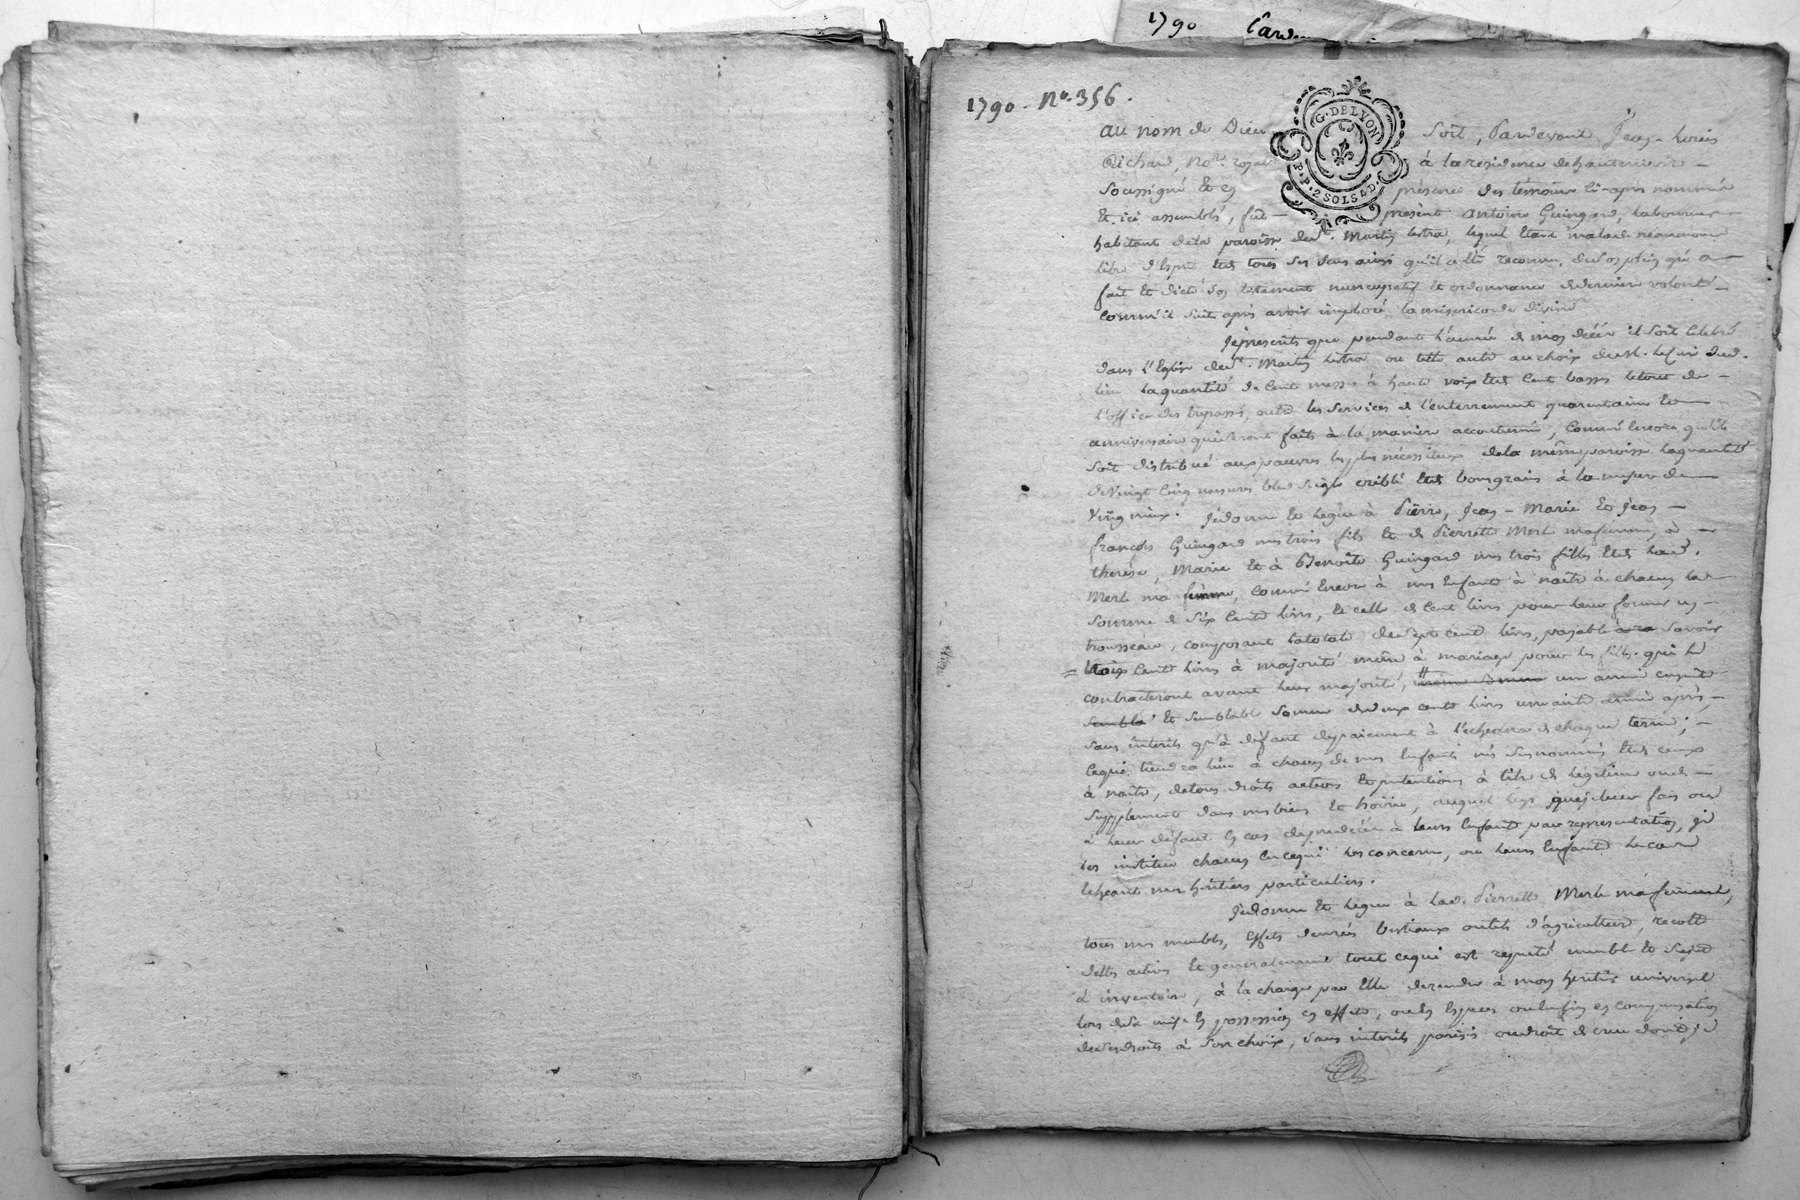 1790
1790 - N°. 356.
G. DE LYON
P. P. 2 SOLS 4 D.
au nom de Dieu soit, Pardevant Jean - Louis
Richard, No.re royal à la residence de
soussigné et en présence des témoins ci-apres nommés
Et ici assemblés, fût - présent antoine Guingard, Laboureur
habitant de la paroisse de St. Martin Lestra, lequel Etant malade néanmoins
libre d'Esprit et tous ses sens ainsi qu'il a été reconnu, de son plein gré a
fait et dicté son testament nuncupatif et ordonnance de derniere volonté
comm'il suit après avoir imploré la misericorde divine
Je prescrits que pendant l'année de mon décès il soit célébré
dans l'Eglise de St. Martin Lestra ou telle autre au choix de M. le Curé dud.
lieu la quantité de Cent messes à haute voix et Cent basses
l'office des trépassés, outre les services de l'enterrement quarantaine et
anniversaire qui seront faits à la maniere accoutumée, comme encore qu'il
soit distribué aux pauvres les plus nécessiteux de la même paroisse la quantité
de vingt cinq mesures bled seigle criblé bon grain à la mesure de
Je donne et legue à Pierre, Jean - Marie et Jean -
françois Guingard mes trois fils et de Pierrette Merle ma femme, à
therese, Marie et à Benoite Guingard mes trois filles et de lad.
Merle ma femme, comme Encore à mes Enfants à naitre à chacun la
somme de six Cents livres, et celle de Cent livres pour leur former un
trousseau, composant la totale de sept cent livres, payable savoir
trois Cents livres à majorité même à mariage pour les filles qui le
contracteront avant leur majorité, une année ensuite
et semblable somme de deux cents livres une autre année après
sans interets qu'à défaut de paiement à l'echeance de chaque terme; -
ce qui tiendra lieu à chacun de mes Enfants nés surnommés et ceux
à naitre, de tous droits actions et pretentions à titre de légitime ou de
supplement dans mes biens et hoirie, auquel legs que je leur fais ou
à leur défaut En cas de prédécès à leurs Enfants par representation, je
les institue chacun En ce qui les concerne, ou leurs Enfants le cas
Echeant mes héritiers particuliers.
Je donne et legue à lad. Pierrette Merle ma femme,
tous mes meubles, Effets denrées bestiaux outils d'agriculture, recolte
dettes actives et generalement tout ce qui est reputé meuble et sujet
à inventaire, à la charge par Elle de rendre à mon heritier universel
lors de sa mise En possession en effets, ou En Especes ou Enfin en compensation
de ses droits à son choix, sans interets